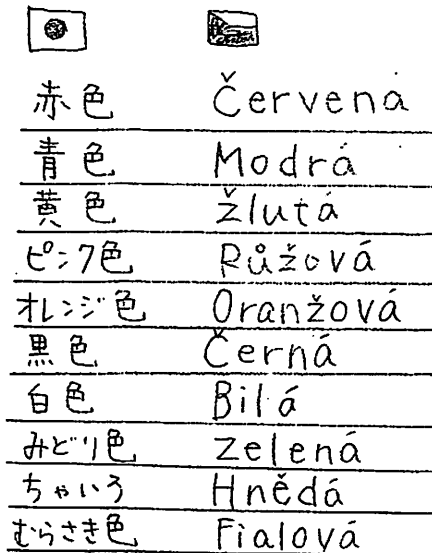 赤色 Červená
青色 Modrá
黄色 žlutá
ピンク色 Růžová
オレンジ色 Oranžová
黒色 Černá
白色 Bilá
みどり色 zelená
ちゃいろ Hnědá
むらさき色 Fialová